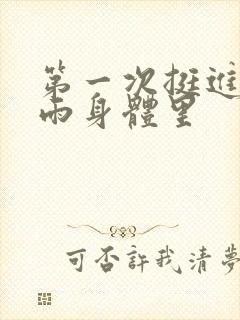 第一次挺進
雨身體里
可否許我清夢